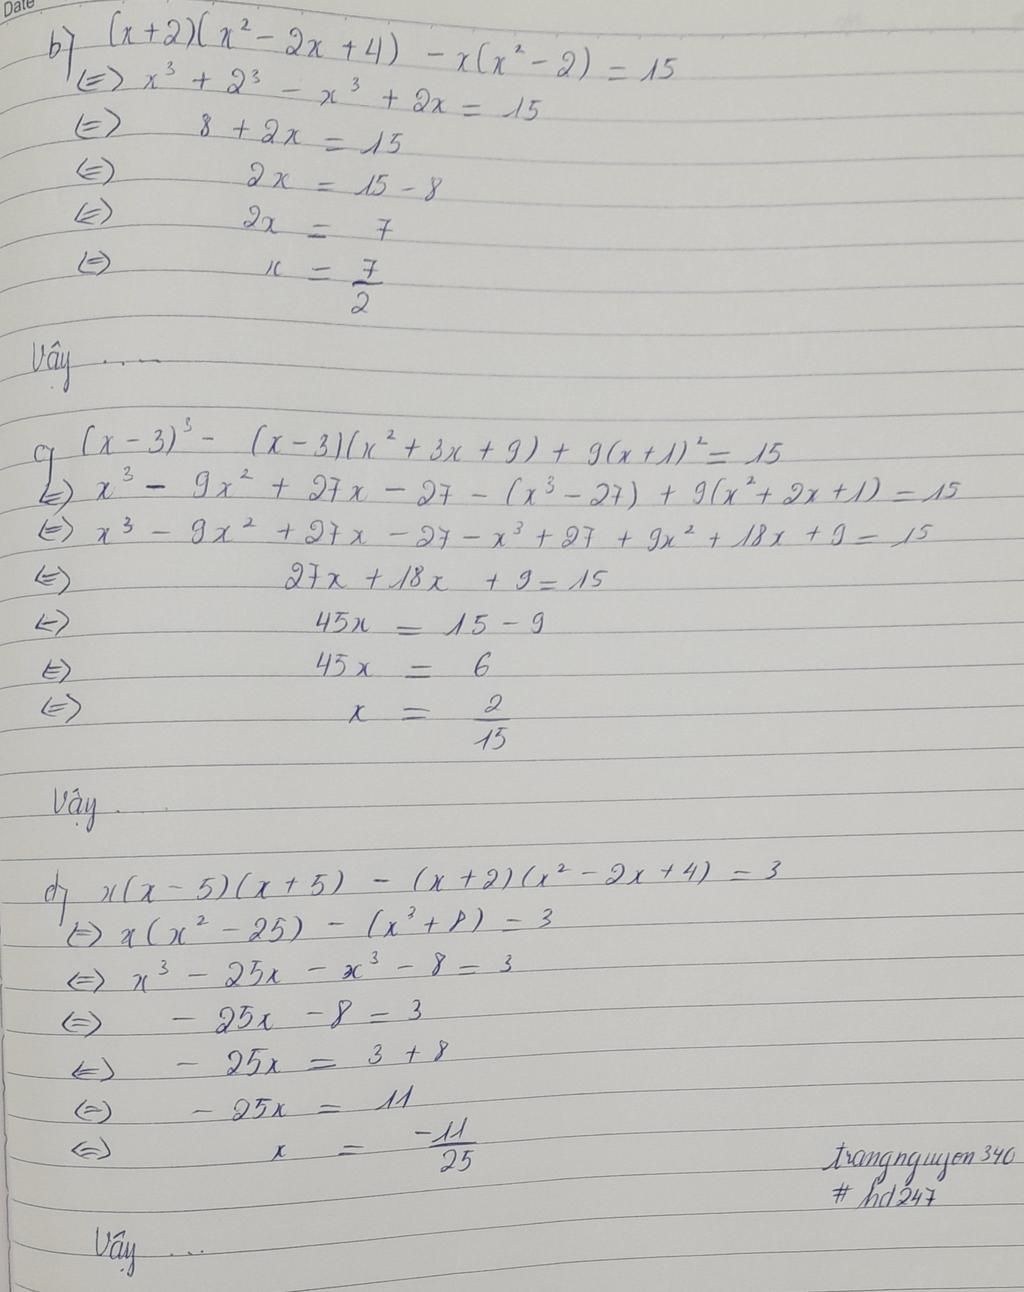 Date
b) (x+2)(x² - 2x + 4) - x(x² - 2) = 15
(=) x³ + 2³ - x³ + 2x = 15
(=) 8 + 2x = 15
(=) 2x = 15 - 8
(=) 2x = 7
(=) x = 7/2
Vậy .....
c) (x - 3)³ - (x - 3)(x² + 3x + 9) + 9(x+1)² = 15
(=) x³ - 9x² + 27x - 27 - (x³ - 27) + 9(x² + 2x + 1) = 15
(=) x³ - 9x² + 27x - 27 - x³ + 27 + 9x² + 18x + 9 = 15
(=) 27x + 18x + 9 = 15
(=) 45x = 15 - 9
(=) 45x = 6
(=) x = 2/15
Vậy ...
d) x(x - 5)(x + 5) - (x + 2)(x² - 2x + 4) = 3
(=) x(x² - 25) - (x³ + 8) = 3
(=) x³ - 25x - x³ - 8 = 3
(=) - 25x - 8 = 3
(=) - 25x = 3 + 8
(=) - 25x = 11
(=) x = -11/25
trangnguyen340
# hd247
Vậy ...